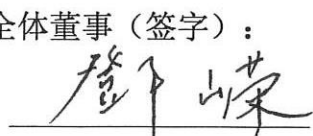 全体董事（签字）：
邓嵘